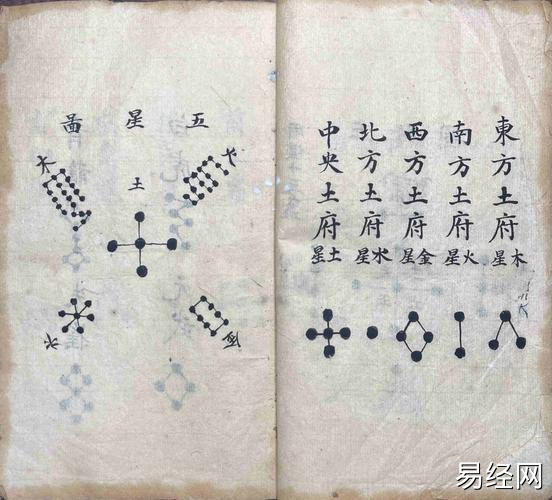 東方土府木星
南方土府火星
西方土府金星
北方土府水星
中央土府土星
五星啚
木
土
金
易经网